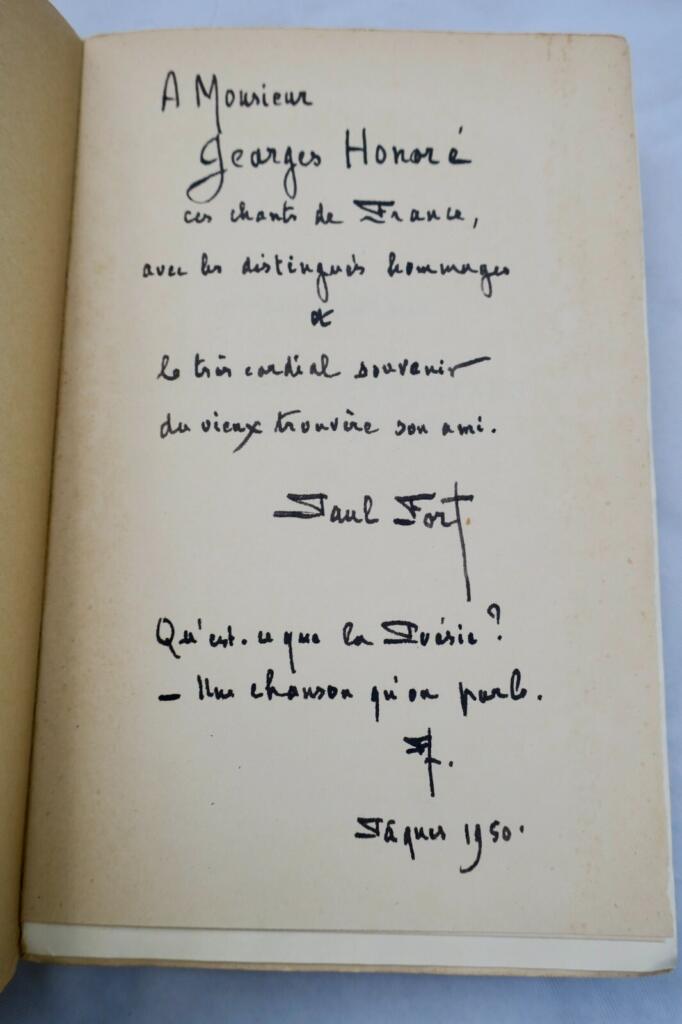 A Monsieur
Georges Honoré
ces chants de France,
avec les distingués hommages
et
le très cordial souvenir
du vieux trouvère son ami.
Paul Fort
Qu'est-ce que la Poésie?
– Une chanson qu'on parle.
Pâques 1950.